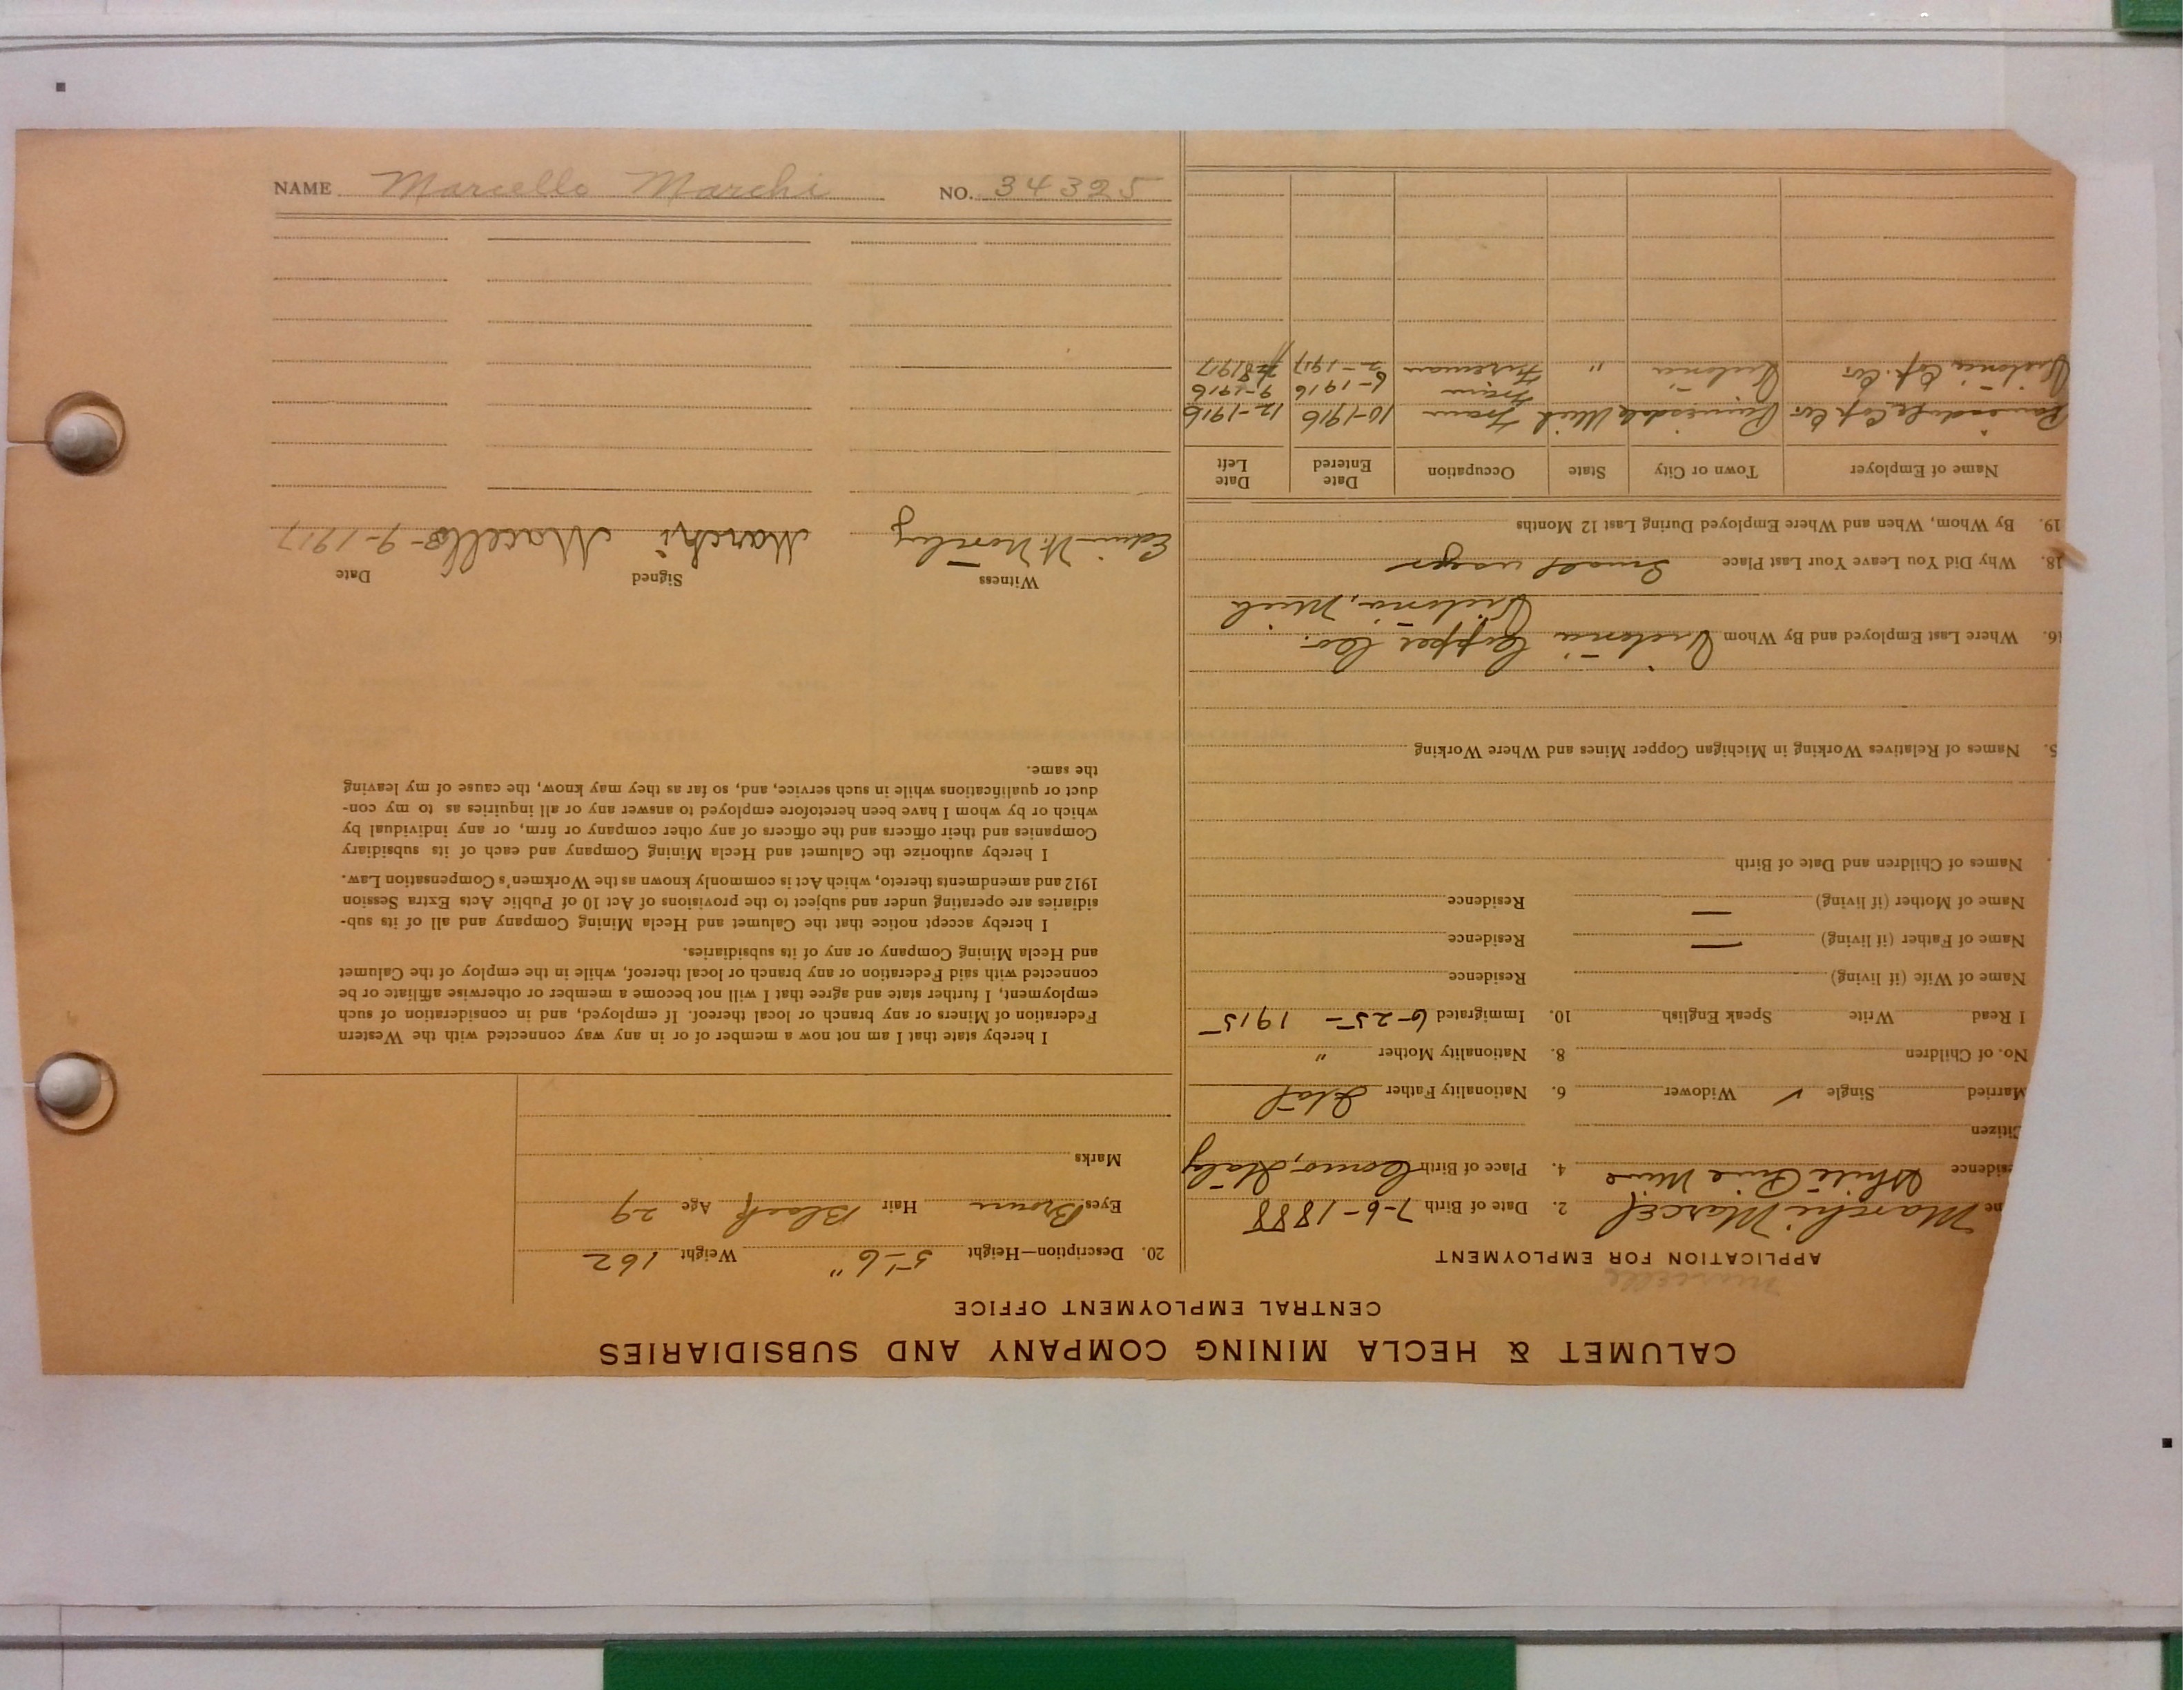 CALUMET & HECLA MINING COMPANY AND SUBSIDIARIES
CENTRAL EMPLOYMENT OFFICE
Marcello
APPLICATION FOR EMPLOYMENT
me Marchi Marcel 2. Date of Birth 7-6-1888
sidence White Pine Mine 4. Place of Birth Como, Italy
Citizen
Married Single ✓ Widower 6. Nationality Father Ital
No. of Children 8. Nationality Mother "
I Read Write Speak English 10. Immigrated 6-25- 1915
Name of Wife (if living) Residence
Name of Father (if living) — Residence
Name of Mother (if living) — Residence
Names of Children and Date of Birth
5. Names of Relatives Working in Michigan Copper Mines and Where Working
16. Where Last Employed and By Whom Victoria Copper Co.
Victoria, Mich
18. Why Did You Leave Your Last Place Small wages
19. By Whom, When and Where Employed During Last 12 Months
Name of Employer Town or City State Occupation Date Entered Date Left
Painesdale Cop. Co Painesdale Mich Tram 10-1916 12-1916
Tram 6-1916 9-1916
Victoria Cop. Co. Victoria " Fireman 2-1917 1917
20. Description—Height 5-6" Weight 162
Eyes Brown Hair Black Age 29
Marks
I hereby state that I am not now a member of or in any way connected with the Western
Federation of Miners or any branch or local thereof. If employed, and in consideration of such
employment, I further state and agree that I will not become a member or otherwise affiliate or be
connected with said Federation or any branch or local thereof, while in the employ of the Calumet
and Hecla Mining Company or any of its subsidiaries.
I hereby accept notice that the Calumet and Hecla Mining Company and all of its sub-
sidiaries are operating under and subject to the provisions of Act 10 of Public Acts Extra Session
1912 and amendments thereto, which Act is commonly known as the Workmen's Compensation Law.
I hereby authorize the Calumet and Hecla Mining Company and each of its subsidiary
Companies and their officers and the officers of any other company or firm, or any individual by
which or by whom I have been heretofore employed to answer any or all inquiries as to my con-
duct or qualifications while in such service, and, so far as they may know, the cause of my leaving
the same.
Witness Signed Date
Edwin W. Marchi Macello 9-1917
NAME Marcello Marchi NO. 34325